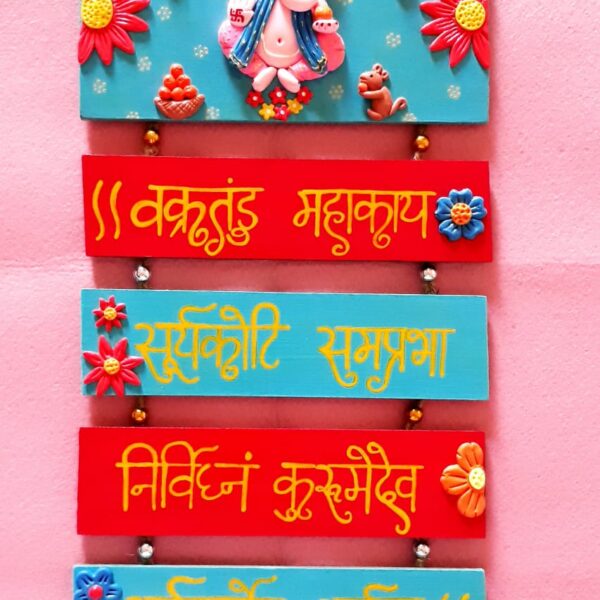 ।। वक्रतुंड महाकाय
सूर्यकोटि सुमप्रभा
निर्विघ्नं कुरूमेदेव